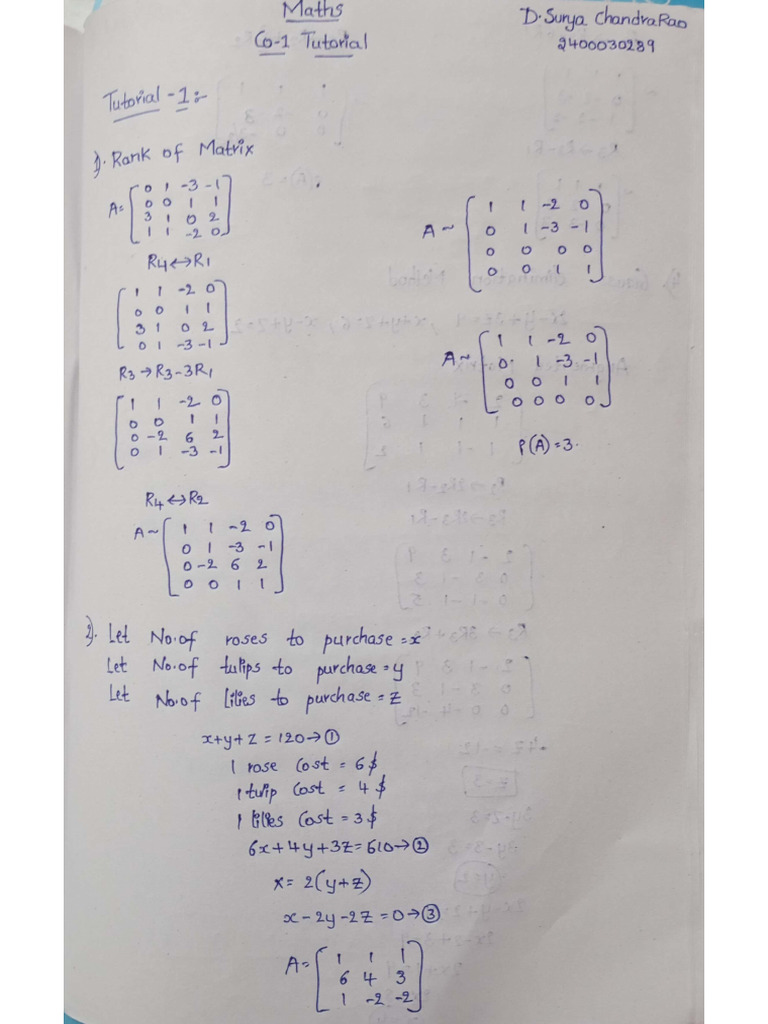 Maths
D. Surya ChandraRao
Co-1 Tutorial
2400030289
Tutorial -1:-
1). Rank of Matrix
A= [0 1 -3 -1
0 0 1 1
3 1 0 2
1 1 -2 0]
R4 ↔ R1
[1 1 -2 0
0 0 1 1
3 1 0 2
0 1 -3 -1]
R3 → R3-3R1
[1 1 -2 0
0 0 1 1
0 -2 6 2
0 1 -3 -1]
R4 ↔ R2
A ~ [1 1 -2 0
0 1 -3 -1
0 -2 6 2
0 0 1 1]
A ~ [1 1 -2 0
0 1 -3 -1
0 0 0 0
0 0 1 1]
A ~ [1 1 -2 0
0 1 -3 -1
0 0 1 1
0 0 0 0]
ρ(A) = 3.
2). Let No.of roses to purchase = x
Let No.of tulips to purchase = y
Let No.of lilies to purchase = z
x+y+z = 120 → ①
1 rose Cost = 6$
1 tulip Cost = 4 $
1 lilies Cost = 3$
6x+4y+3z = 610 → ②
x = 2(y+z)
x - 2y - 2z = 0 → ③
A = [1 1 1
6 4 3
1 -2 -2]